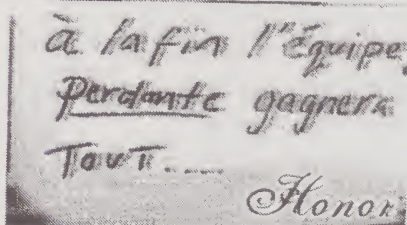 à la fin l'équipe
perdante gagnera
Tout....
Honor